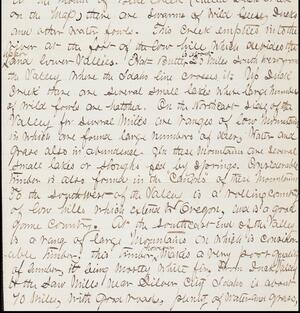 At the mouth of Creek
on the Map) there are Swarms of Wild Geese, Ducks
and other Water fowls. This Creek empties into the
River at the foot of the low hills Which divides the
Upper and lower Vallies. (Flat Butte) 25 Miles South West from
the Valley Where the Idaho line crosses it. Up
Creek there are several Small Lakes Where large Number
of Wild fowls are hatched. On the North East side of the
Valley for several Miles are ranges of low Mountains
in which are found large numbers of deer, Water and
Grass also in abundance. In these Mountains are several
small Lakes or Sloughs fed by Springs. Considerable
timber is also found in the Cañons of these Mountains
To the South West of the Valley is a rolling country
of low hills which extend to Oregon, and is a good
Game Country. At the South East End of the Valley
is a range of large Mountains on which is consider-
able timber. This timber Makes a very poor quality
of lumber, it being Mostly White fir. From Duck Valley
to the Saw Mills near Silver City Idaho is about
70 Miles, with good roads, plenty of Water and Grass,